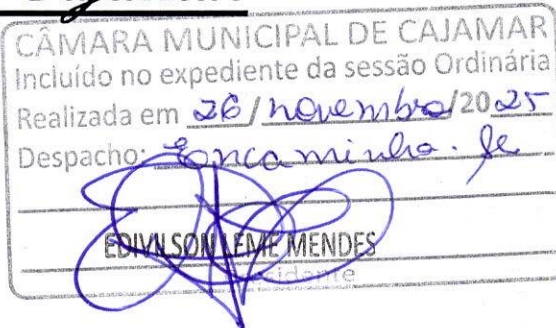 CÂMARA MUNICIPAL DE CAJAMAR
Incluído no expediente da sessão Ordinária
Realizada em 26/novembro/2025
Despacho: Encaminha-se
EDIVILSON LEME MENDES
Presidente